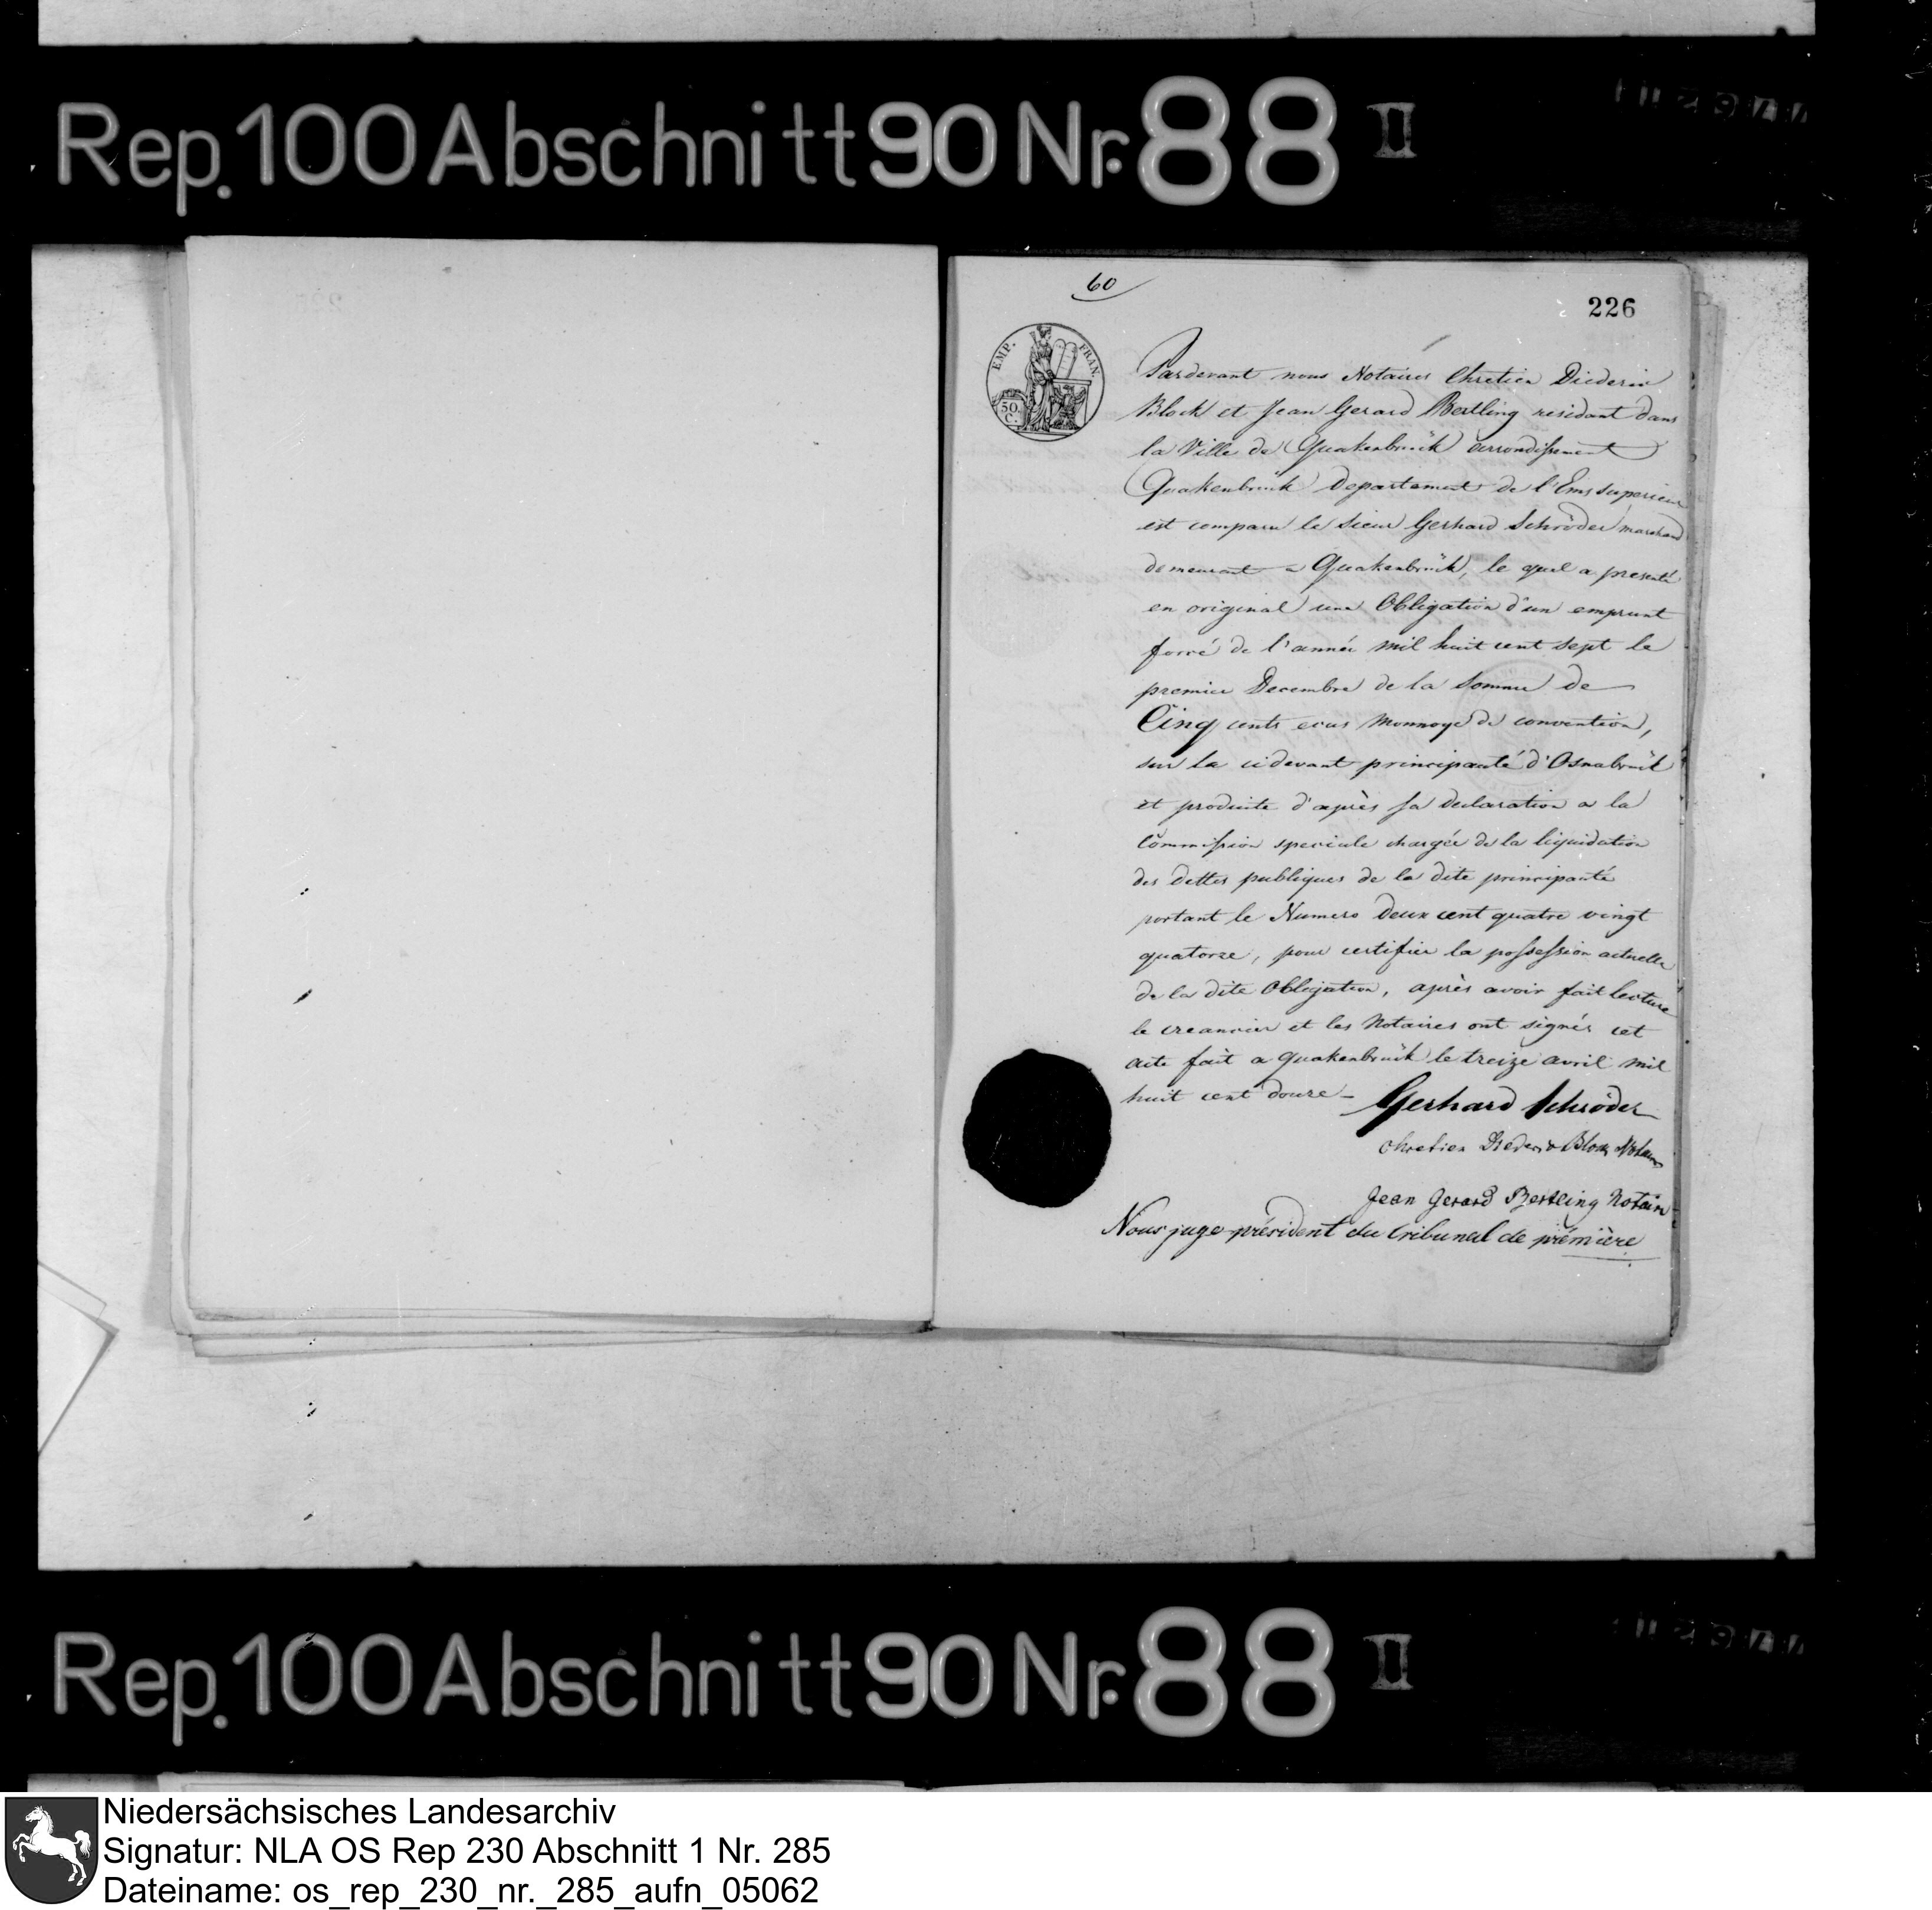 Rep.100 Abschnitt 90 Nr. 88 II
60
226
EMP. FRAN.
50 C.
Pardevant nous Notaires Chretien Diederic
Block et Jean Gerard Bertling residant dans
la Ville de Quakenbrück arrondissement
Quakenbrück Departement de l'Ems superieur
est comparu le Sieur Gerhard Schröder marchand
demeurant a Quakenbrück, le quel a presenté
en original une Obligation d'un emprunt
forcé de l'année mil huit cent sept le
premier Decembre de la Somme de
Cinq cents ecus Monnoye de convention,
sur la cidevant principauté d'Osnabrück
et produite d'après sa declaration a la
Commission speciale chargée de la liquidation
des dettes publiques de la dite principauté
portant le Numero deux cent quatre vingt
quatorze, pour certifier la possession actuelle
de la dite Obligation, après avoir fait lecture
le creancier et les Notaires ont signés cet
acte fait a Quakenbrück le treize avril mil
huit cent douze –
Gerhard Schröder
Chretien Diederic Block Notaire
Jean Gerard Bertling Notaire
Nous juge-président du tribunal de prémière
Rep.100 Abschnitt 90 Nr. 88 II
Niedersächsisches Landesarchiv
Signatur: NLA OS Rep 230 Abschnitt 1 Nr. 285
Dateiname: os_rep_230_nr._285_aufn_05062